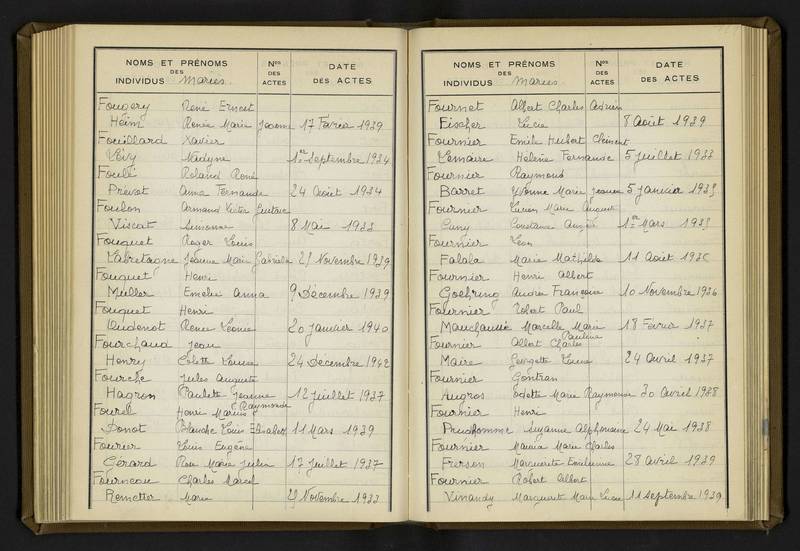 NOMS ET PRÉNOMS DES INDIVIDUS Mariés Nos DES ACTES DATE DES ACTES
Fougery René Ernest
Heim Renée Marie Jeanne 17 Février 1939
Fouillard Xavier
Lévy Nadyne 1er Septembre 1934
Foulé Roland René
Prévot Anna Fernande 24 Août 1934
Foulon Armand Victor Gustave
Viscat Simonne 8 Mai 1933
Fouquet Roger Louis
Labretagne Jeanne Marie Gabrielle Novembre 1939
Fouquet Henri
Müller Emelie Anna 9 Décembre 1939
Fouquet Henri
Oudenot Renée Léonie 20 Janvier 1940
Fourchaud Jean
Henry Colette Louise 24 Décembre 1942
Fourche Jules Auguste
Hagron Paulette Jeanne 12 Juillet 1937
Fourel Henri Marius Raymonde
Donot Blanche Louis Elisabeth 11 Mars 1939
Fourier Louis Eugène
Gérard Rose Marie Julia 17 Juillet 1937
Fourneau Charles Marcel
Remetter Marie Novembre 1933
NOMS ET PRÉNOMS DES INDIVIDUS Mariés Nos DES ACTES DATE DES ACTES
Fournet Albert Charles Adrien
Eischer Lucie 8 Août 1939
Fournier Emile Hubert Clément
Lemaire Hélène Fernande 5 Juillet 1933
Fournier Raymond
Barret Yvonne Marie Jeanne 5 Janvier
Fournier Lucien Marie August
Cuny Constance 1er Mars
Fournier Léon
Falala Marie Mathilde 11 Août
Fournier Henri Albert
Goehring Andrée Françoise 10 Novembre 1936
Fournier Robert Paul
Mauchaussée Marcelle Marie Pauline 18 Février 1937
Fournier Albert Charles
Maire Georgette Lucie 24 Avril 1937
Fournier Gontran
Augros Odette Marie Raymonde 30 Avril 1938
Fournier Henri
Prudhomme Suzanne Alphonsine 24 Mai 1938
Fournier Marie Charles
Frerson Marguerite Emilienne 28 Avril 1939
Fournier Robert Albert
Vinandy Marguerit Marie Lucie 11 Septembre 1939